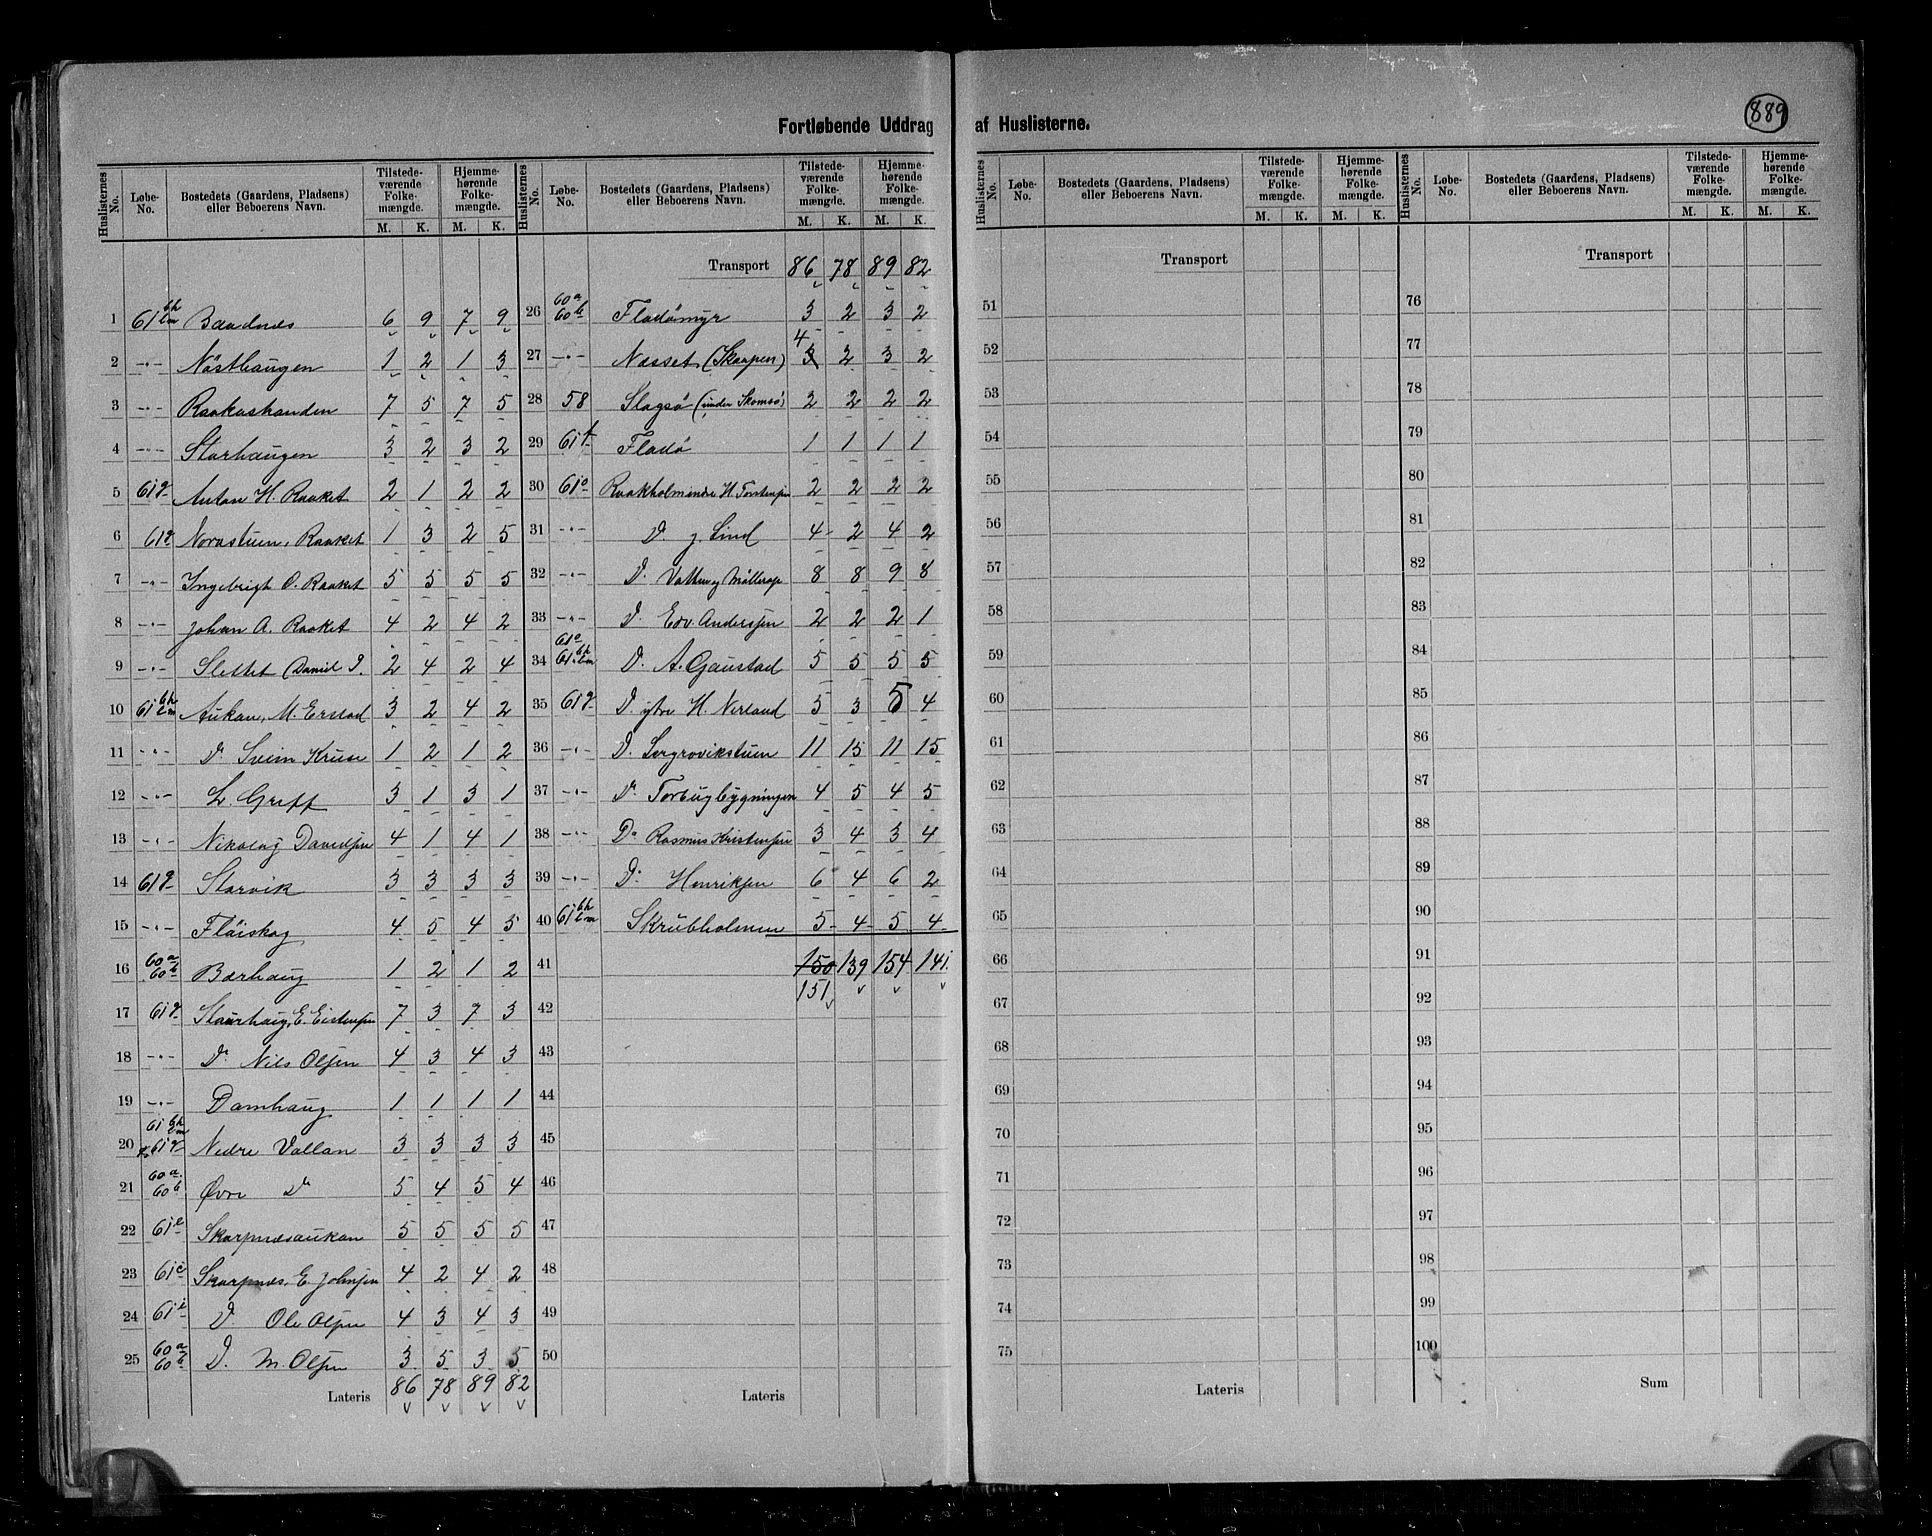 889
Fortløbende Uddrag af Huslisterne.
Huslisternes No. Løbe-No. Bostedets (Gaardens, Pladsens) eller Beboerens Navn. Tilstedeværende Folkemængde. M. K. Hjemmehørende Folkemængde. M. K.
1 61 bh lm Baadnes 6 9 7 9
2 -"- Nösthaugen 1 2 1 3
3 -"- Raakashanden 7 5 7 5
4 -"- Storhaugen 3 2 3 2
5 61 q Anton H. Raaket 2 1 2 2
6 61 q Norastuen, Raaket 1 3 2 5
7 -"- Ingebrigt O. Raaket 5 5 5 5
8 -"- Johan A. Raaket 4 2 4 2
9 -"- Slettet (Daniel I. 2 4 2 4
10 61 bh lm Aukan, M. Erstad 3 2 4 2
11 -"- Do Sveim Kruse 1 2 1 2
12 -"- L. Griff 3 1 3 1
13 -"- Nikolay Davidsen 4 1 4 1
14 61 q Storvik 3 3 3 3
15 -"- Flöiskog 4 5 4 5
16 60 a 60 b Bærhaug 1 2 1 2
17 61 q Staurhaug, E. Eistensen 7 3 7 3
18 -"- Do Nils Olsen 4 3 4 3
19 -"- Damhaug 1 1 1 1
20 61 bh lm & 61 q Nedre Vollan 3 3 3 3
21 60 a 60 b Øvre Do 5 4 5 4
22 61 e Skarpnæsaukan 5 5 5 5
23 61 c Skarpnes, E. Johnsen 4 2 4 2
24 61 i D. Ole Olsen 4 3 4 3
25 60 a 60 b D. M. Olsen 3 5 3 5
Lateris 86 78 89 82
Huslisternes No. Løbe-No. Bostedets (Gaardens, Pladsens) eller Beboerens Navn. Tilstedeværende Folkemængde. M. K. Hjemmehørende Folkemængde. M. K.
Transport 86 78 89 82
26 60 a 60 b Fladömyr 3 2 3 2
27 -"- Næsset (Skarpen) 3 4 2 3 2
28 58 Slagsö (under Skomsö) 2 2 2 2
29 61 f Fladö 1 1 1 1
30 61 o Raakholmindre H. Torstensen 2 2 2 2
31 -"- D. J. Lind 4 2 4 2
32 -"- D. Møllerop 8 8 9 8
33 -"- D. Edv. Andersen 2 2 2 1
34 61 o 61 bh lm D. A. Gaustad 5 5 5 5
35 61 q D. ytre H. Nerland 3 3 5 4
36 -"- D. Sorgrovikstuen 11 15 11 15
37 -"- Do Torbugbygningen 4 5 4 5
38 -"- Do Rasmus Kristensen 3 4 3 4
39 -"- Do Henriksen 6 4 6 2
40 61 bh lm Skrubholmen 5 4 5 4
41 150 139 154 141
151
42
43
44
45
46
47
48
49
50
Lateris
Huslisternes No. Løbe-No. Bostedets (Gaardens, Pladsens) eller Beboerens Navn. Tilstedeværende Folkemængde. M. K. Hjemmehørende Folkemængde. M. K.
Transport
51
52
53
54
55
56
57
58
59
60
61
62
63
64
65
66
67
68
69
70
71
72
73
74
75
Lateris
Huslisternes No. Løbe-No. Bostedets (Gaardens, Pladsens) eller Beboerens Navn. Tilstedeværende Folkemængde. M. K. Hjemmehørende Folkemængde. M. K.
Transport
76
77
78
79
80
81
82
83
84
85
86
87
88
89
90
91
92
93
94
95
96
97
98
99
100
Sum